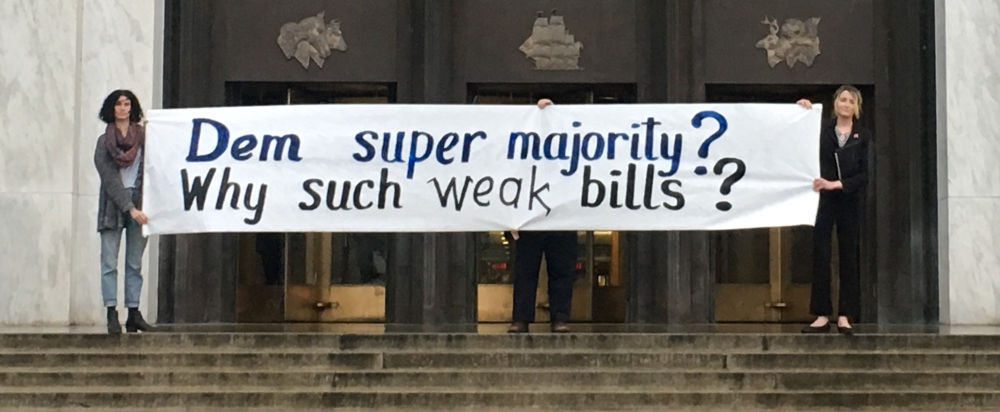 Dem super majority?
Why such weak bills?